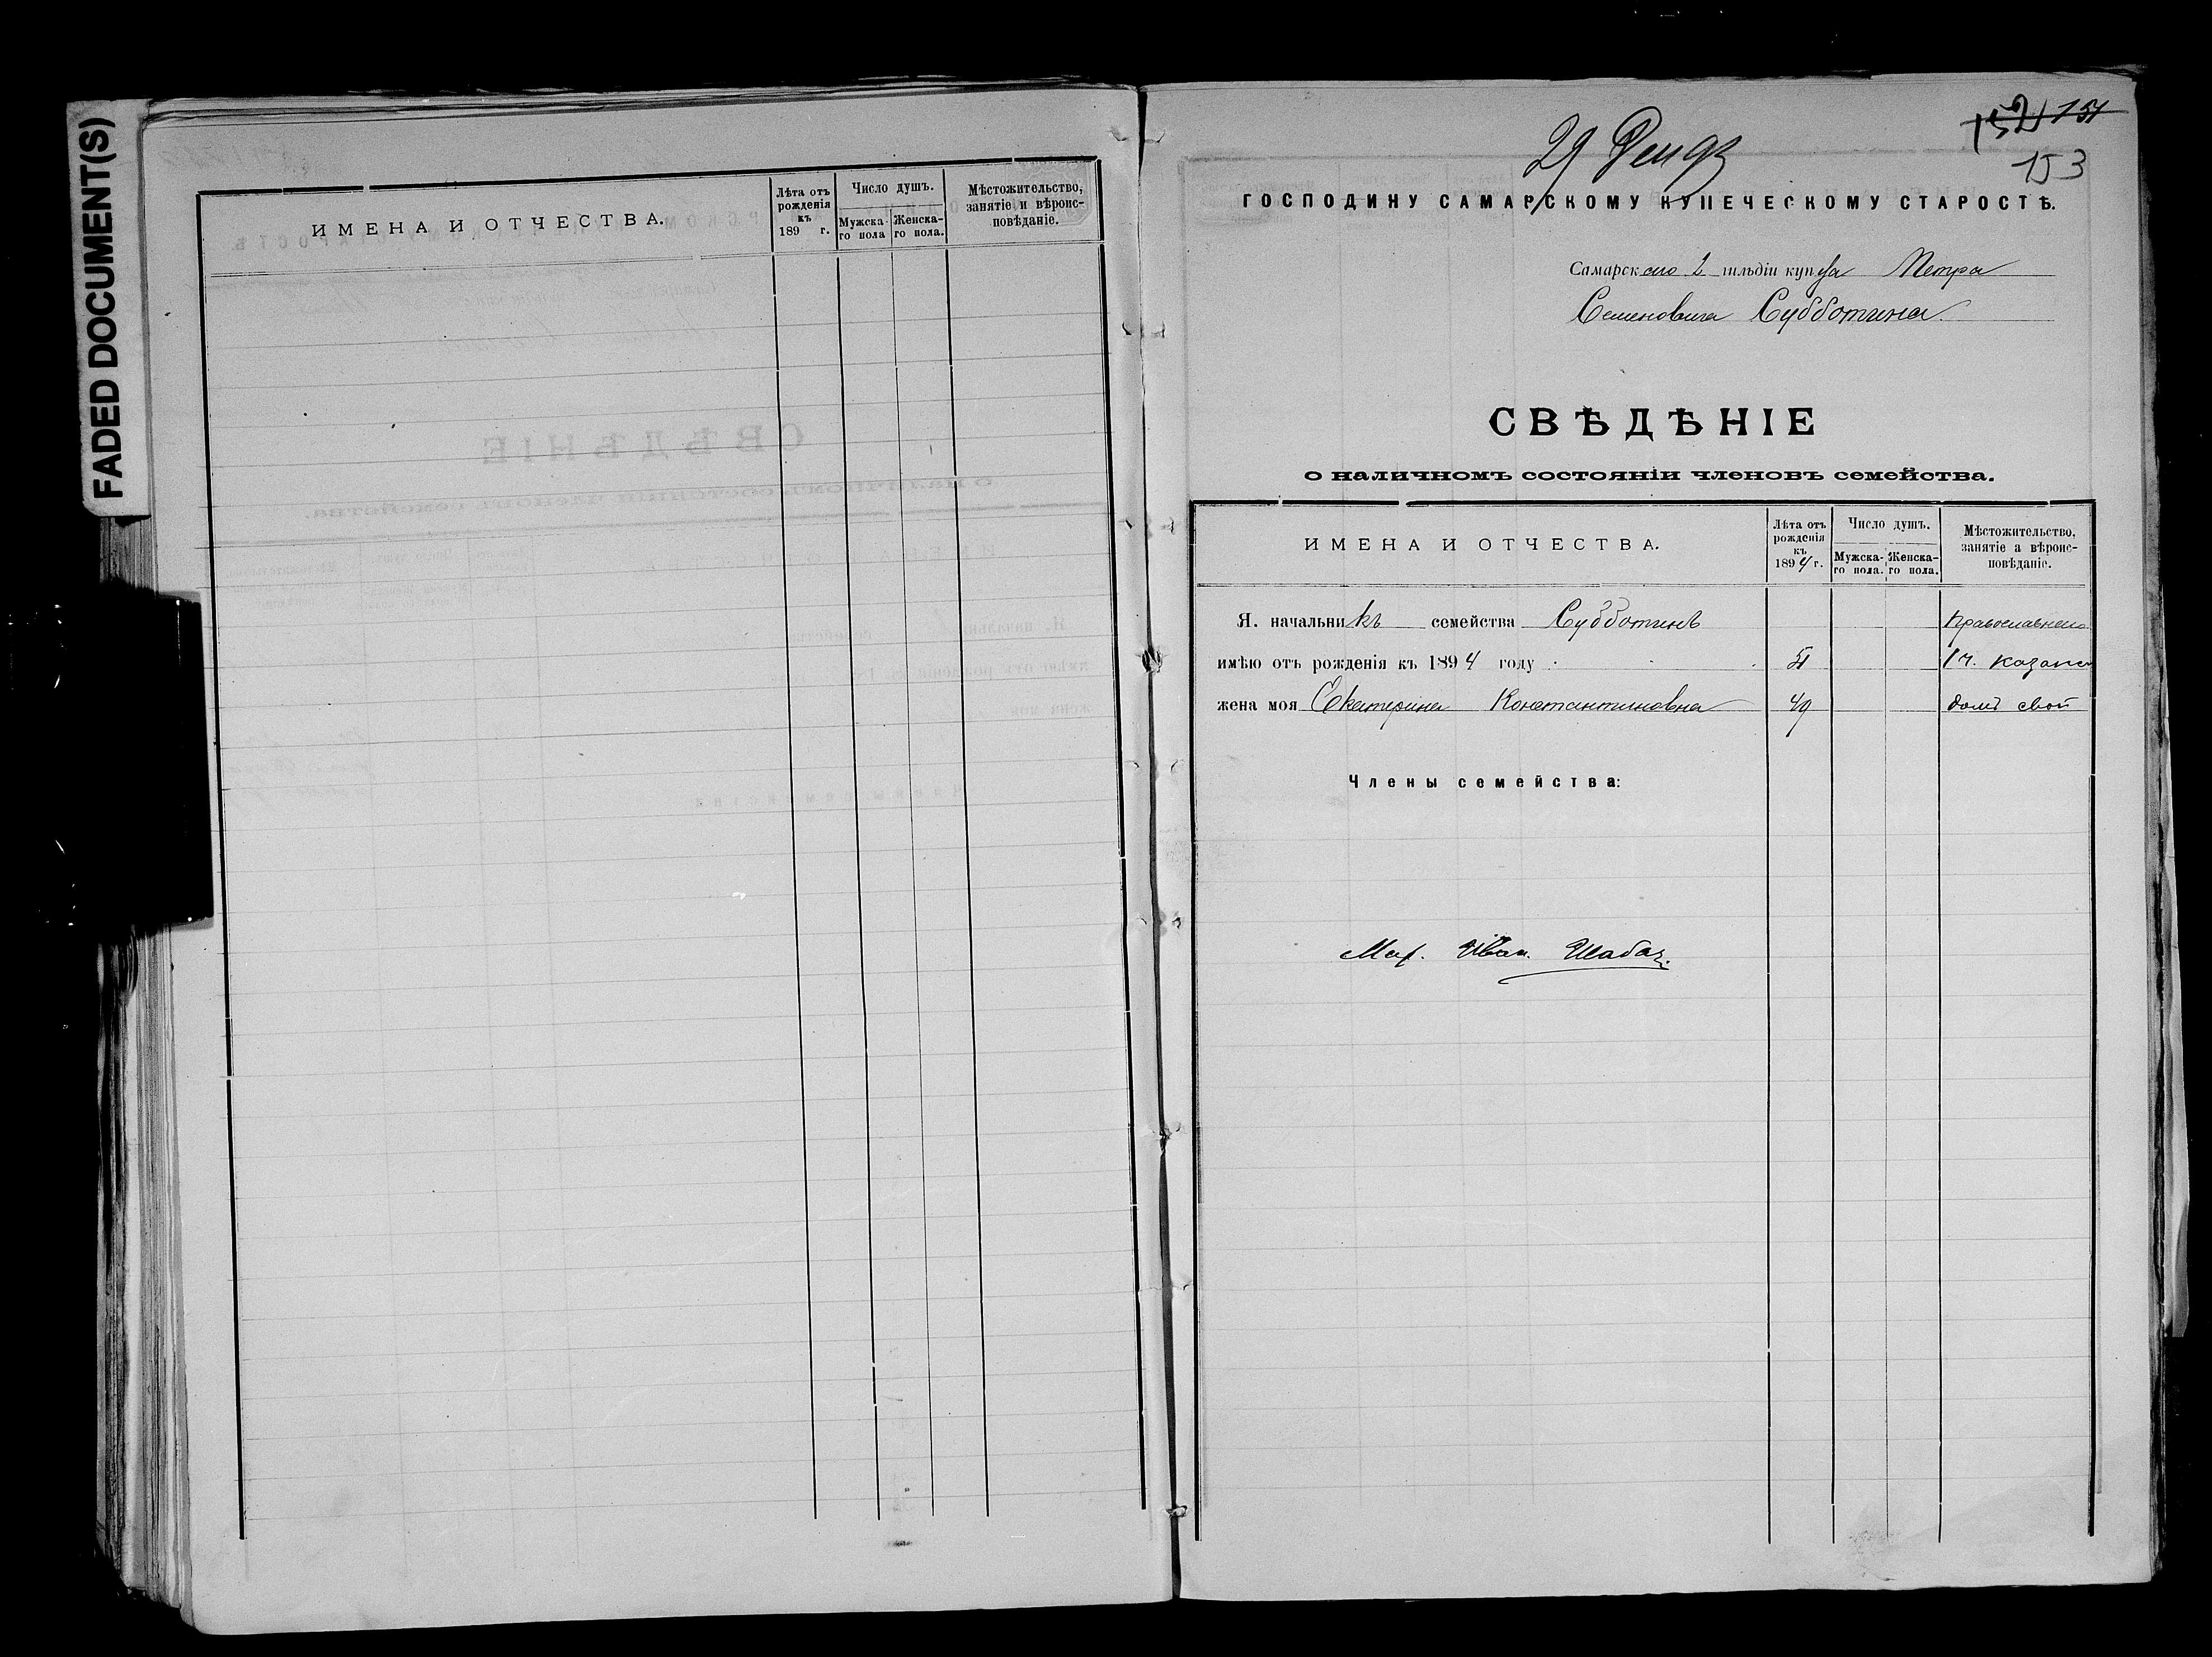 FADED DOCUMENT(S)
ИМЕНА И ОТЧЕСТВА.
Лѣта отъ рожденія къ 189 г.
Число душъ.
Мужска-го пола
Женска-го пола.
Мѣстожительство, занятіе и вѣроис-повѣданіе.
152 151
153
29 Дек 93
ГОСПОДИНУ САМАРСКОМУ КУПЕЧЕСКОМУ СТАРОСТѢ.
Самарскаго 2 гильдіи купца Петра
Семеновича Субботина
СВѢДѢНІЕ
о наличномъ состояніи членовъ семейства.
ИМЕНА И ОТЧЕСТВА.
Лѣта отъ рожденія къ 1894 г.
Число душъ.
Мужска-го пола.
Женска-го пола.
Мѣстожительство, занятіе а вѣроис-повѣданіе.
Я. начальникъ семейства Субботинъ Православнаго
имѣю отъ рожденія къ 1894 году 51 1 ч. Казанс
жена моя Екатерина Константиновна 49 домъ свой
Члены семейства:
Иван.